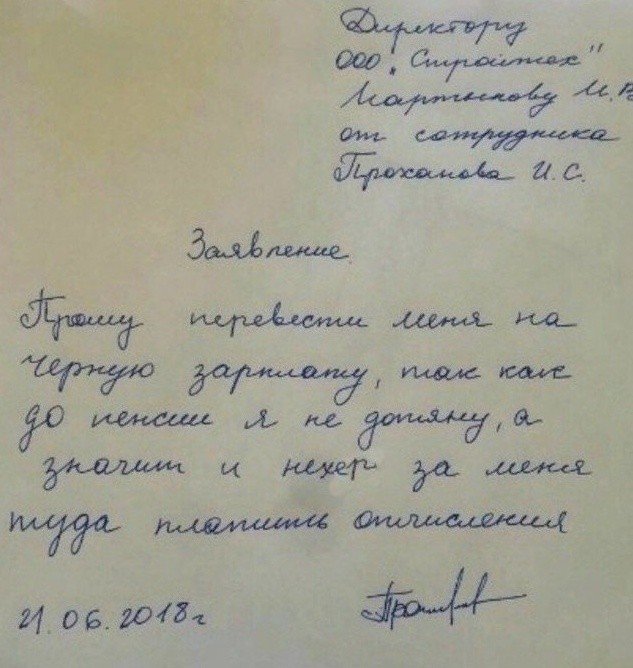 Директору
ООО „Стройтех"
Мартынову И.В
от сотрудника
Проханова И.С.
Заявление.
Прошу перевести меня на
черную зарплату, так как
до пенсии я не дотяну, а
значит и нехер за меня
туда платить отчисления
21.06.2018г